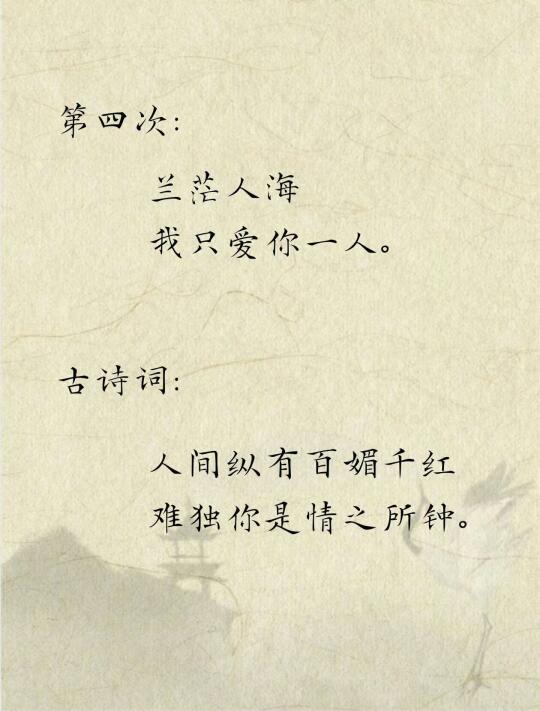 第四次:
兰茫人海
我只爱你一人。
古诗词:
人间纵有百媚千红
难独你是情之所钟。